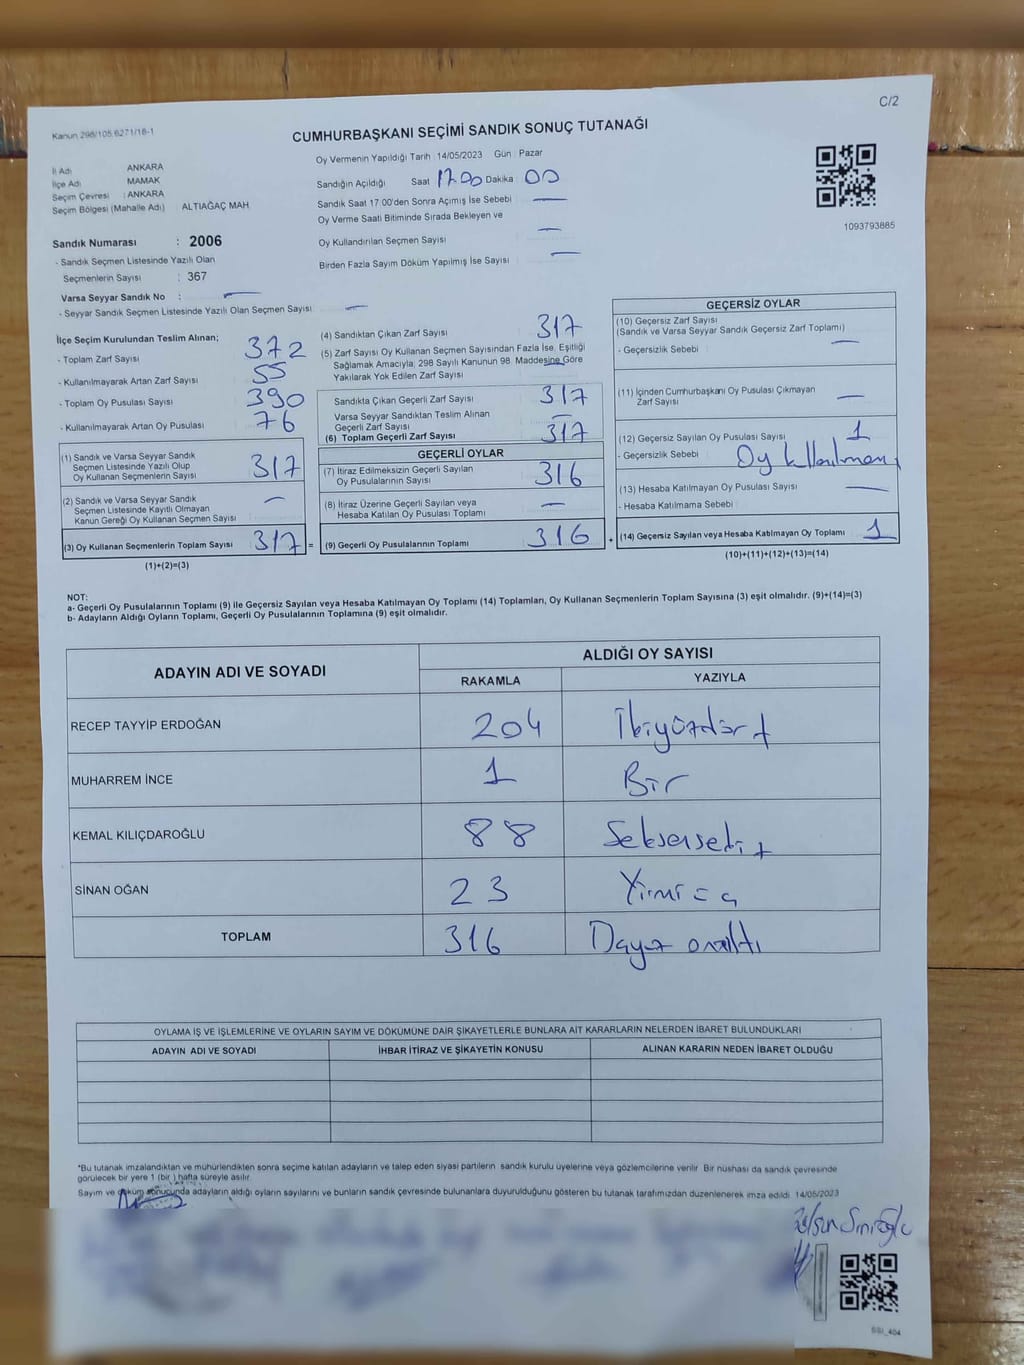 C/2
Kanun 298/105.6271/18-1
CUMHURBAŞKANI SEÇİMİ SANDIK SONUÇ TUTANAĞI
İl Adı ANKARA
İlçe Adı MAMAK
Seçim Çevresi : ANKARA
Seçim Bölgesi (Mahalle Adı) : ALTIAĞAÇ MAH
Sandık Numarası : 2006
- Sandık Seçmen Listesinde Yazılı Olan
Seçmenlerin Sayısı : 367
Varsa Seyyar Sandık No : —
- Seyyar Sandık Seçmen Listesinde Yazılı Olan Seçmen Sayısı —
Oy Vermenin Yapıldığı Tarih : 14/05/2023 Gün : Pazar
Sandığın Açıldığı Saat 17.00 Dakika 00
Sandık Saat 17.00'den Sonra Açımış İse Sebebi —
Oy Verme Saati Bitiminde Sırada Bekleyen ve
Oy Kullandırılan Seçmen Sayısı —
Birden Fazla Sayım Döküm Yapılmış İse Sayısı —
1093793885
İlçe Seçim Kurulundan Teslim Alınan;
- Toplam Zarf Sayısı 372
- Kullanılmayarak Artan Zarf Sayısı 55
- Toplam Oy Pusulası Sayısı 390
- Kullanılmayarak Artan Oy Pusulası 76
(1) Sandık ve Varsa Seyyar Sandık
Seçmen Listesinde Yazılı Olup
Oy Kullanan Seçmenlerin Sayısı 317
(2) Sandık ve Varsa Seyyar Sandık
Seçmen Listesinde Kayıtlı Olmayan
Kanun Gereği Oy Kullanan Seçmen Sayısı —
(3) Oy Kullanan Seçmenlerin Toplam Sayısı 317 =
(1)+(2)=(3)
(4) Sandıktan Çıkan Zarf Sayısı 317
(5) Zarf Sayısı Oy Kullanan Seçmen Sayısından Fazla İse, Eşitliği
Sağlamak Amacıyla; 298 Sayılı Kanunun 98. Maddesine Göre
Yakılarak Yok Edilen Zarf Sayısı —
Sandıkta Çıkan Geçerli Zarf Sayısı 317
Varsa Seyyar Sandıktan Teslim Alınan
Geçerli Zarf Sayısı —
(6) Toplam Geçerli Zarf Sayısı 317
GEÇERLİ OYLAR
(7) İtiraz Edilmeksizin Geçerli Sayılan
Oy Pusulalarının Sayısı 316
(8) İtiraz Üzerine Geçerli Sayılan veya
Hesaba Katılan Oy Pusulası Toplamı —
(9) Geçerli Oy Pusulalarının Toplamı 316 +
GEÇERSİZ OYLAR
(10) Geçersiz Zarf Sayısı
(Sandık ve Varsa Seyyar Sandık Geçersiz Zarf Toplamı)
- Geçersizlik Sebebi —
(11) İçinden Cumhurbaşkanı Oy Pusulası Çıkmayan
Zarf Sayısı —
(12) Geçersiz Sayılan Oy Pusulası Sayısı 1
- Geçersizlik Sebebi Oy
(13) Hesaba Katılmayan Oy Pusulası Sayısı —
- Hesaba Katılmama Sebebi
(14) Geçersiz Sayılan veya Hesaba Katılmayan Oy Toplamı 1
(10)+(11)+(12)+(13)=(14)
NOT:
a- Geçerli Oy Pusulalarının Toplamı (9) ile Geçersiz Sayılan veya Hesaba Katılmayan Oy Toplamı (14) Toplamları, Oy Kullanan Seçmenlerin Toplam Sayısına (3) eşit olmalıdır. (9)+(14)=(3)
b- Adayların Aldığı Oyların Toplamı, Geçerli Oy Pusulalarının Toplamına (9) eşit olmalıdır.
ADAYIN ADI VE SOYADI ALDIĞI OY SAYISI
RAKAMLA YAZIYLA
RECEP TAYYİP ERDOĞAN 204 İkiyüzdört
MUHARREM İNCE 1 Bir
KEMAL KILIÇDAROĞLU 88 Seksensekiz
SİNAN OĞAN 23 Yirmi üç
TOPLAM 316 Üçyüz onaltı
OYLAMA İŞ VE İŞLEMLERİNE VE OYLARIN SAYIM VE DÖKÜMÜNE DAİR ŞİKAYETLERLE BUNLARA AİT KARARLARIN NELERDEN İBARET BULUNDUKLARI
ADAYIN ADI VE SOYADI İHBAR İTİRAZ VE ŞİKAYETİN KONUSU ALINAN KARARIN NEDEN İBARET OLDUĞU
*Bu tutanak imzalandıktan ve mühürlendikten sonra seçime katılan adayların ve talep eden siyasi partilerin sandık kurulu üyelerine veya gözlemcilerine verilir. Bir nüshası da sandık çevresinde
görülecek bir yere 1 (bir) hafta süreyle asılır.
Sayım ve döküm sonucunda adayların aldığı oyların sayılarını ve bunların sandık çevresinde bulunanlara duyurulduğunu gösteren bu tutanak tarafımızdan düzenlenerek imza edildi. 14/05/2023
SSI_404